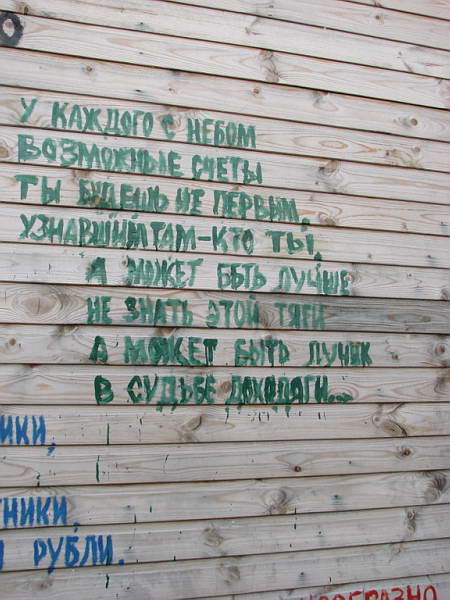 У КАЖДОГО С НЕБОМ
ВОЗМОЖНЫЕ СЧЕТЫ
ТЫ БУДЕШЬ НЕ ПЕРВЫМ,
УЗНАВШИМ ТАМ-КТО ТЫ,
А МОЖЕТ БЫТЬ ЛУЧШЕ
НЕ ЗНАТЬ ЭТОЙ ТЯГИ
А МОЖЕТ БЫТЬ ЛУЧИК
В СУДЬБЕ ДОХОДЯГИ...
ИКИ,
НИКИ,
РУБЛИ.
ООБРАЗНО